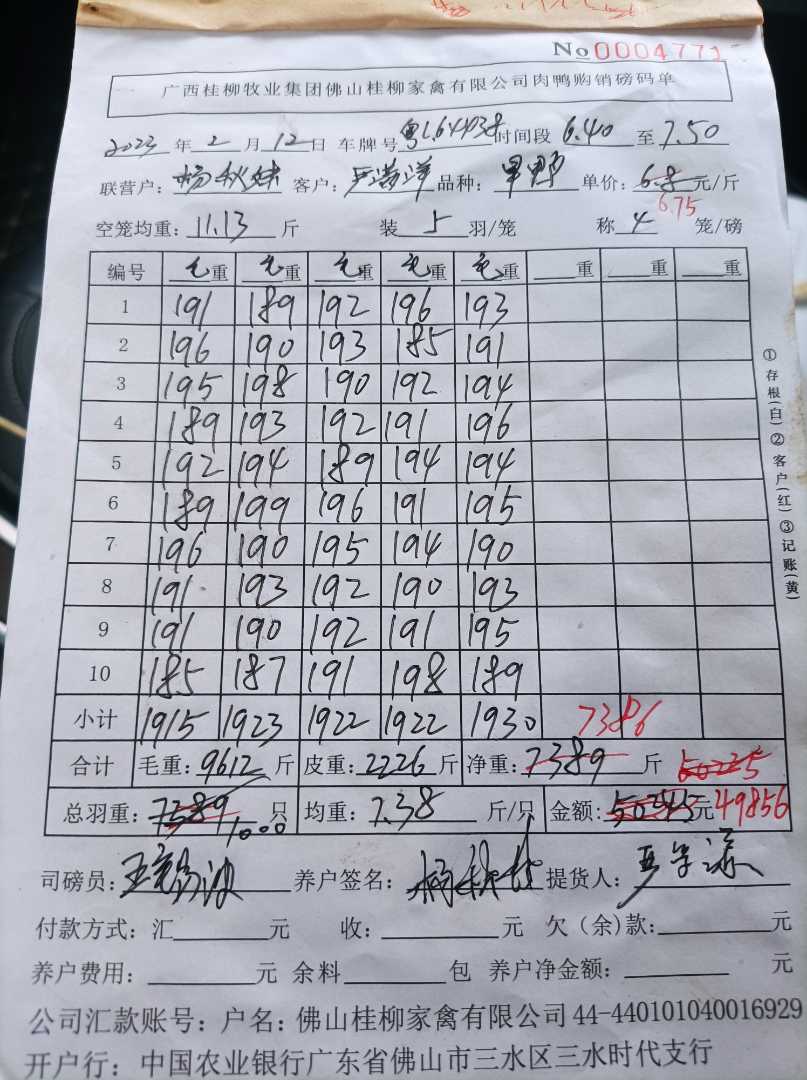 No 0004771
广西桂柳牧业集团佛山桂柳家禽有限公司肉鸭购销磅码单
2023 年 2 月 12 日 车牌号 粤L64438 时间段 6.40 至 7.50
联营户: 杨秋妹 客户: 品种: 单价: 6.8 元/斤
6.75
空笼均重: 11.13 斤 装 5 羽/笼 称 4 笼/磅
编号 毛重 毛重 毛重 毛重 毛重 重 重 重
1 191 189 192 196 193
2 196 190 193 185 191
3 195 198 190 192 194
4 189 193 192 191 196
5 192 194 189 194 194
6 189 199 196 191 195
7 196 190 195 194 190
8 191 193 192 190 193
9 191 190 192 191 195
10 185 187 191 198 189
小计 1915 1923 1922 1922 1930 7386
合计 毛重: 9612 斤 皮重: 2226 斤 净重: 7389 斤 50225
总羽重: 7389 只 均重: 7.38 斤/只 金额: 元 49856
1000
司磅员: 养户签名: 提货人:
付款方式: 汇 元 收: 元 欠(余)款: 元
养户费用: 元 余料 包 养户净金额: 元
公司汇款账号: 户名: 佛山桂柳家禽有限公司 44-440101040016929
开户行: 中国农业银行广东省佛山市三水区三水时代支行
①存根(白)②客户(红)③记账(黄)